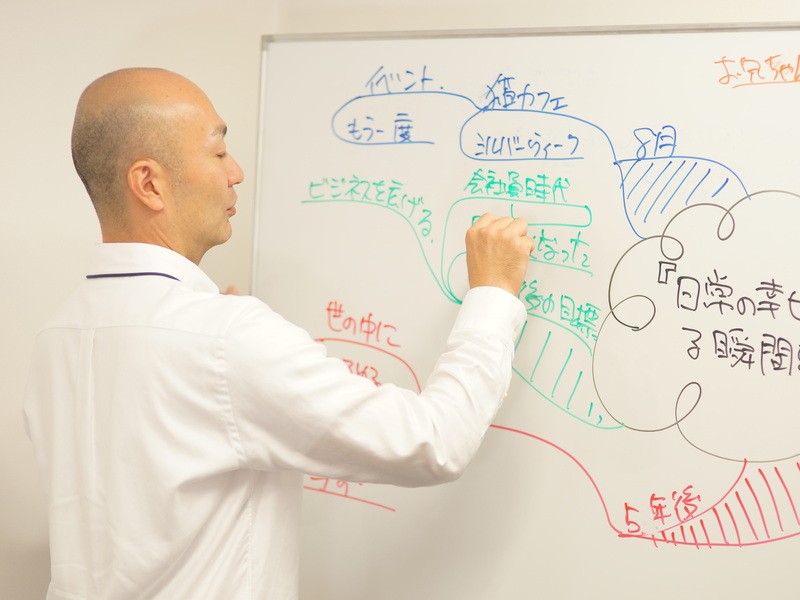 イベント.
もう一度
猫カフェ
シルバーウィーク
8月
お兄ちゃん
ビジネスを広げる.
会社員時代
なった
後の目標
『日常の幸せ
る瞬間
世の中に
5年後